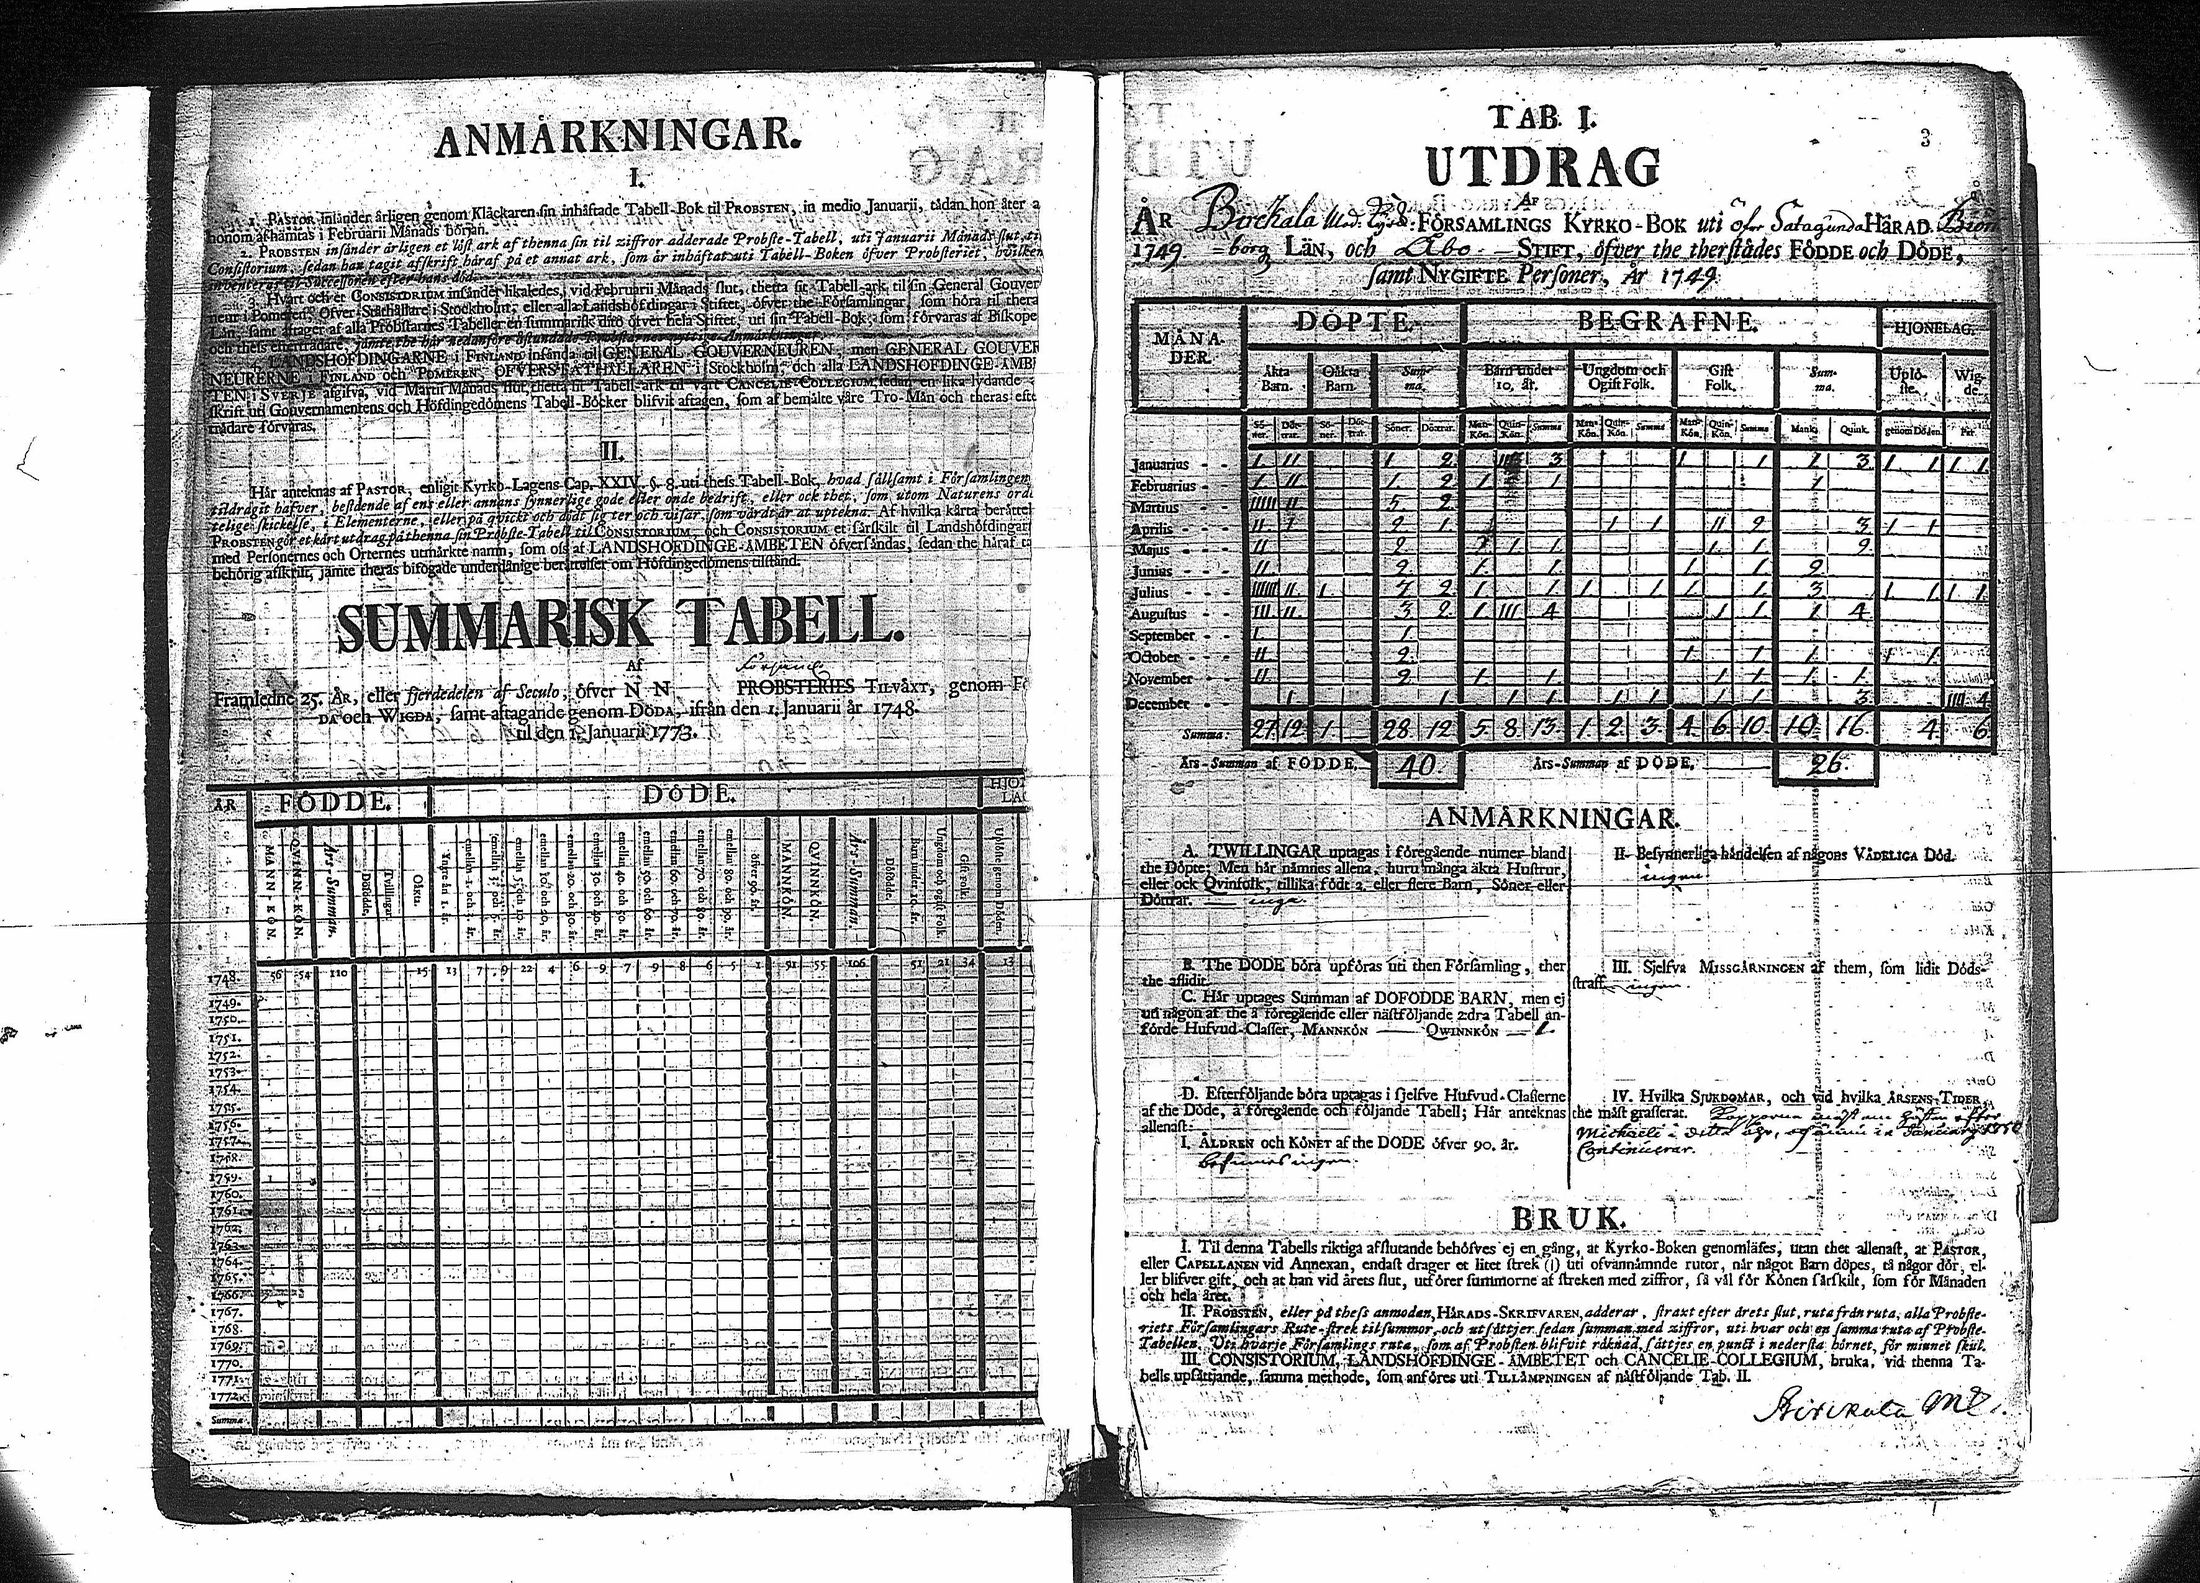 ANMÅRKNINGAR.
I.
1. PASTOR inlånder årligen genom Klåckaren sin inhåftade Tabell-Bok til PROBSTEN, in medio Januarii, tådan hon åter a
honom afhåmtas i Februarii Månads början.
2. PROBSTEN insånder årligen et löst ark af thenna sin til ziffror adderade Probste-Tabell, uti Januarii Månads slut, ti
Consistorium, sedan han tagit afskrift håraf på et annat ark, som år inhåftat uti Tabell-Boken öfver Probsteriet, hvilken
inventeras til Successoren efter hans död.
3. Hvart och et CONSISTORIUM insånder likaledes, vid Februarii Månads slut, thetta sit Tabell-ark til sin General Gouver
neur i Pomeren, Öfver-Ståthållare i Stockholm, eller alla Landshöfdingar i Stiftet, öfver the Församlingar, som höra til thera
Lån, samt aftager af alla Probstarnes Tabeller en summarisk dito öfver hela Stiftet, uti sin Tabell-Bok, som förvaras af Biskope
och thess efterträdare, jåmte the hår nedanföre åstundade Probstarnes nyttige Anmårkningar.
LANDSHÖFDINGARNE i FINLAND insånda til GENERAL GOUVERNEUREN, men GENERAL GOUVER
NEURERNE i FINLAND och POMEREN, ÖFVERSTÅTHÅLLAREN i Stockholm, och alla LANDSHÖFDINGE-ÅMBE
TEN i SVERJE afgifva, vid Martii Månads slut, thetta sit Tabell-ark til vårt CANCELIE-COLLEGIUM, sedan en lika lydande
skrift uti Gouvernamentens och Höfdingedömens Tabell-Böcker blifvit aftagen, som af bemålte våre Tro-Mån och theras efte
trådare förvaras.
II.
Hår anteknas af PASTOR, enligit Kyrko-Lagens Cap. XXIV. §. 8. uti thess Tabell-Bok, hvad sållsamt i Församlingen
tildragit hafver, bestående af ens eller annans synnerlige gode eller onde bedrift, eller ock thet, som utom Naturens ord
telige skickelse, i Elementerne, eller på qvickt och dödt sig ter och visar, som vårdt år at uptekna. Af hvilka kårta beråttel
PROBSTEN gör et kårt utdrag på thenna sin Probste-Tabell til CONSISTORIUM, och CONSISTORIUM et sårskilt til Landshöfdingar
med Personernes och Orternes utmårkte namn, som ofs af LANDSHÖFDINGE-ÅMBETEN öfversåndas, sedan the håraf ta
behörig afskrift, jåmte theras bifogade underdånige beråttelser om Höfdingedömens tilstånd.
SUMMARISK TABELL.
AF
Framledne 25. ÅR, eller fjerdedelen af Seculo, öfver N N PROBSTERIES TILVÅXT, genom Fö
DA och WIGDA, samt aftagande genom DÖDA, ifrån den 1. Januarii år 1748.
til den 1. Januarii 1773.
ÅR FÖDDE. DÖDE. HJO
LAG
MANN-KÖN. QVINN-KÖN. Års-Summan. Dödfödde. Tvillingar. Oåkta. Yngre ån 1. år. emellan 1. och 3. år. emellan 3. och 5. år. emellan 5. och 10. år. emellan 10. och 20. år. emellan 20. och 30. år. emellan 30. och 40. år. emellan 40. och 50. år. emellan 50. och 60. år. emellan 60. och 70. år. emellan 70. och 80. år. emellan 80. och 90. år. öfver 90. år. MANNKÖN. QVINNKÖN. Års-Summan. Dödfödde. Barn under 10. år. Ungdom och ogift Folk. Gift Folk. Uplöste genom Döden.
1748. 56 54 110 15 13 7 9 22 4 6 9 7 9 8 6 5 1 51 55 106 51 21 34 13
1749.
1750.
1751.
1752.
1753.
1754.
1755.
1756.
1757.
1758.
1759.
1760.
1761.
1762.
1763.
1764.
1765.
1766.
1767.
1768.
1769.
1770.
1771.
1772.
Summa
3
TAB. I.
UTDRAG
AF
ÅR FÖRSAMLINGS KYRKO-BOK uti öfre Satagunda HÅRAD. Biörne
1749 =borg LÄN, och Åbo STIFT, öfver the therstådes FÖDDE och DÖDE,
samt NYGIFTE Personer, År 1749
MÅNA-
DER. DÖPTE. BEGRAFNE. HJONELAG.
Åkta Barn. Oåkta Barn. Summa. Barn under 10. år. Ungdom och Ogift Folk. Gift Folk. Summa. Uplöste. Wigde.
Söner. Döttrar. Söner. Döttrar. Söner. Döttrar. Man-Kön. Quin-Kön. Summa Man-Kön. Quin-Kön. Summa Man-Kön. Quin-Kön. Summa Mank. Quink. genom Döden. Par
Januarius - - 1 11 1 2 3 1 1 1 3 1 1 1 1
Februarius - 1 11 1 2 1 1 1
Martius - - 11111 11 5 2
Aprilis - - 11 1 2 1 1 1 11 2 3 1 1
Majus - - 11 2 1 1 1 1 2
Junius - - 11 2 1 1 1 1 2
Julius - - 11 1 7 2 1 1 1 1 1 1 3 1 1 1 1
Augustus - - 111 11 3 2 1 111 4 1 1 1 4
September - - 1 1
October - - 11 2 1 1 1 1 1
November - - 11 2 1 1 1 1 1 1
December - - 1 1 1 1 1 1 1 1 3 1111 4
Summa: 27 12 1 28 12 5 8 13 1 2 3 4 6 10 10 16 4 6
Års-Summan af FÖDDE. 40. Års-Summan af DÖDE. 26.
ANMÅRKNINGAR.
A. TWILLINGAR uptagas i föregående numer bland
the Döpte; Men hår nåmnes allena, huru många åkta Hustrur,
eller ock Qvinfolk, tillika födt 2. eller flere Barn, Söner eller
Döttrar. inga
B. The DÖDE böra upföras uti then Församling, ther
the aflidit.
C. Hår uptages Summan af DÖFÖDDE BARN, men ej
uti någon af the å föregående eller nåstföljande 2dra Tabell an-
förde Hufvud-Classer, MANNKÖN QWINNKÖN 1.
D. Efterföljande böra uptagas i sjelfve Hufvud-Classerne
af the Döde, å föregående och följande Tabell; Hår anteknas
allenast:
I. ÅLDREN och KÖNET af the DÖDE öfver 90. år.
befinnes ingen.
II. Besynnerliga håndelsen af någons VÅDELIGA Död.
ingen
III. Sjelfva MISSGÅRNINGEN af them, som lidit Döds-
straff. ingen.
IV. Hvilka SJUKDOMAR, och vid hvilka ÅRSENS-TIDER
the måst grasserat. Kopporna måst om hösten efter
Michaeli i detta åhr, och ännu in Januario 1750
Continuerar.
BRUK.
I. Til denna Tabells riktiga afslutande behöfves ej en gång, at Kyrko-Boken genomlåses, utan thet allenast, at PASTOR,
eller CAPELLANEN vid Annexan, endast drager et litet strek (|) uti ofvannåmnde rutor, når något Barn döpes, tå någor dör, el-
ler blifver gift, och at han vid årets slut, utförer summorne af streken med ziffror, så vål för Könen sårskilt, som för Månaden
och hela året.
II. PROBSTEN, eller på thess anmodan, HÅRADS-SKRIFVAREN, adderar, straxt efter årets slut, ruta från ruta, alla Probste-
riets Församlingars Rute-strek til summor, och utsåttjer sedan summan med ziffror, uti hvar och en samma ruta af Probste-
Tabellen. Uti hvarje Församlings ruta, som af Probsten blifvit råknad, såttjes en punct i nedersta hörnet, för minnet skul.
III. CONSISTORIUM, LANDSHÖFDINGE-ÅMBETET och CANCELIE-COLLEGIUM, bruka, vid thenna Ta-
bells upsåttjande, samma methode, som anföres uti TILLÅMPNINGEN af nåstföljande Tab. II.